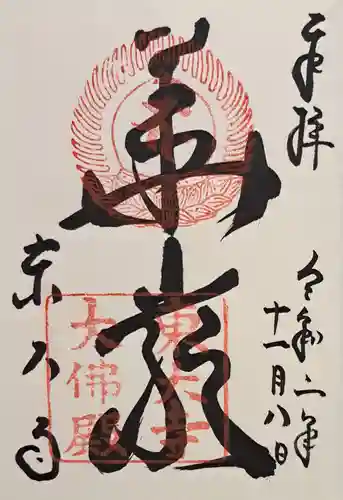 奉拝
令和二年
十一月八日
華嚴
東大寺
大佛殿
東大寺